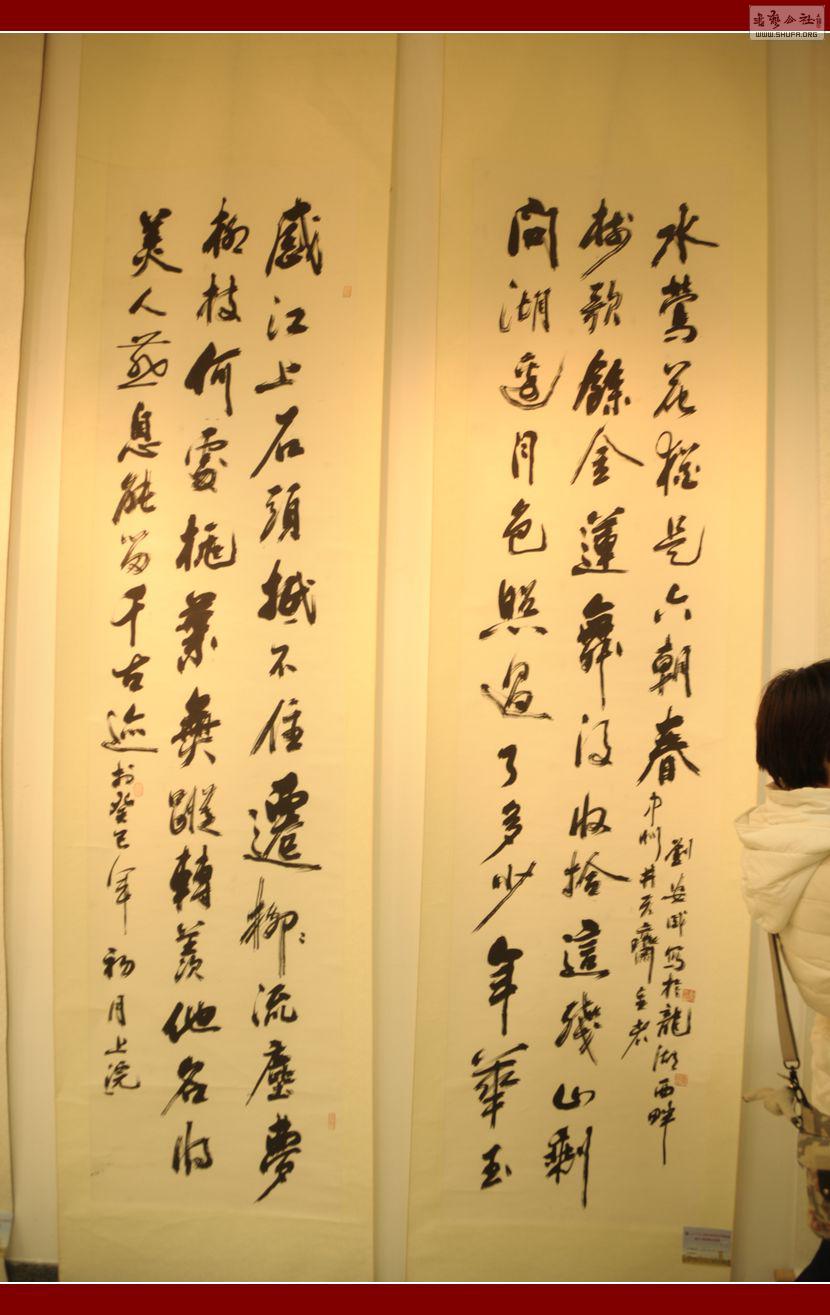 書藝公社
WWW.SHUFA.ORG
感江上石頭抵不住遷柳流塵夢
柳枝何處桃葉無蹤轉羨他名將
美人燕息能留千古迹
於癸巳年初月上浣
問湖邊月色照過了多少年華玉
樹歌餘金蓮舞後收拾這殘山剩
水鶯花猶是六朝春
劉安成寫於龍湖西畔
中州井天齋主者